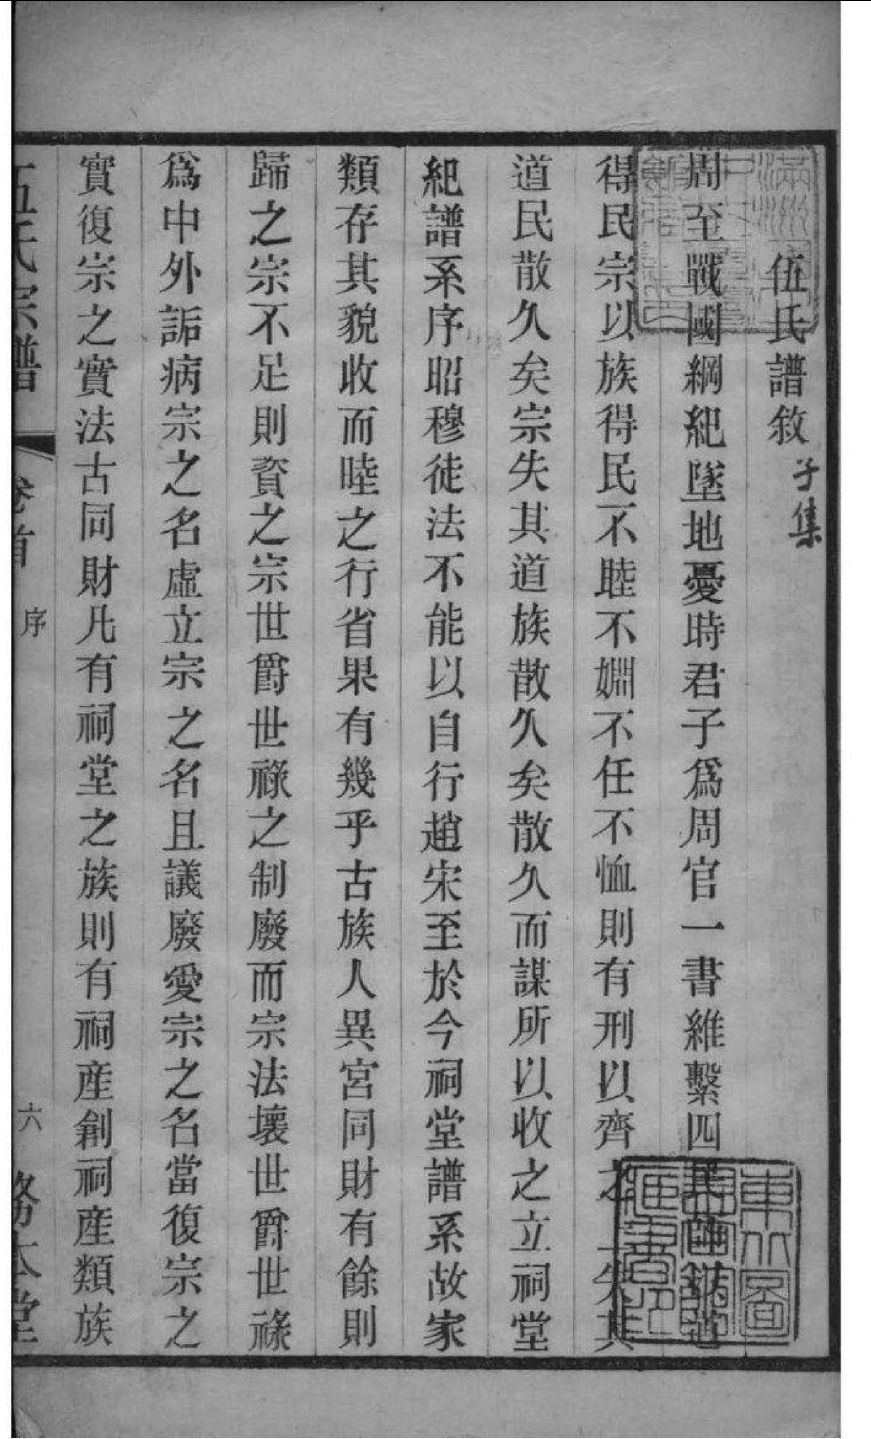 伍氏譜敘
子集
周至戰國綱紀墜地憂時君子爲周官一書維繫四民
得民宗以族得民不睦不婣不任不恤則有刑以齊之上失其
道民散久矣宗失其道族散久矣散久而謀所以收之立祠堂
紀譜系序昭穆徒法不能以自行趙宋至於今祠堂譜系故家
類存其貌收而睦之行省果有幾乎古族人異宮同財有餘則
歸之宗不足則資之宗世爵世祿之制廢而宗法壞世爵世祿
爲中外詬病宗之名虛立宗之名且議廢愛宗之名當復宗之
實復宗之實法古同財凡有祠堂之族則有祠產創祠產類族
伍氏宗譜
卷首
序
六
務本堂